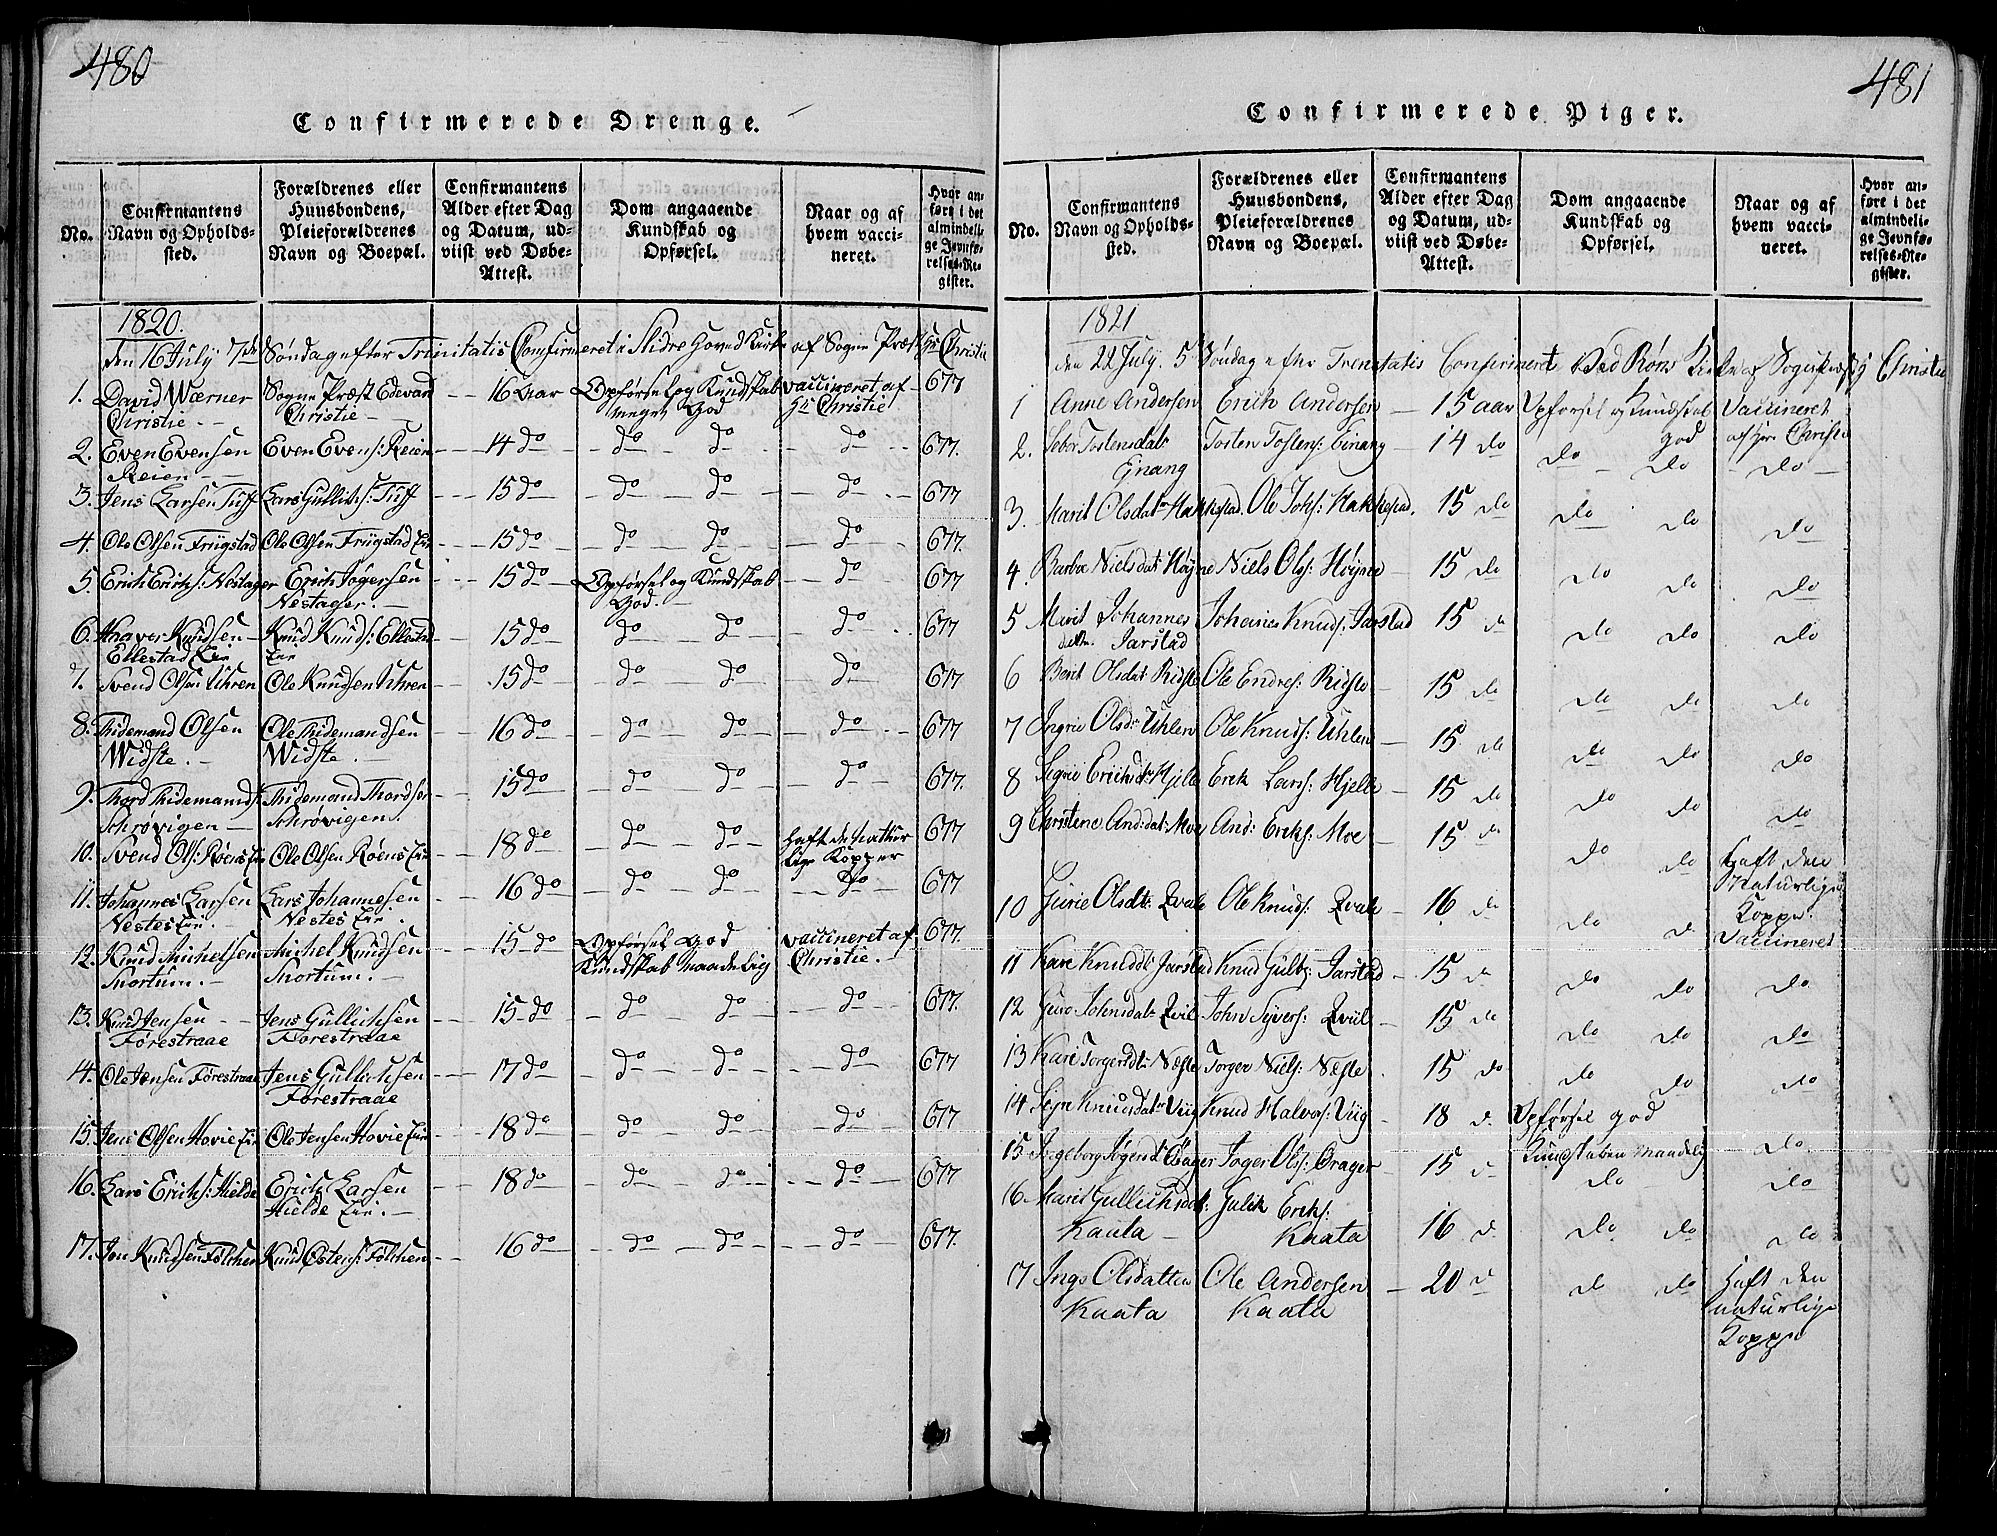 480
Confirmerede Drenge.
No.
Confirmantens Navn og Opholdssted.
Forældrenes eller Huusbondens, Pleieforældrenes Navn og Boepæl.
Confirmantens Alder efter Dag og Datum, udviist ved Døbe-Attest.
Dom angaaende Kundskab og Opførsel.
Naar og af hvem vaccineret.
Hvor anført i det almindelige Jevnførelses-Register.
1820.
den 16 July 7de Søndag efter Trinitatis Confirmeret i Slidre Hoved Kirke af Sogne Præst Hr Christie
1. David Wærner Sogne Præst Edevard -- 16 Aar Opførsel og Kundskab vaccineret af 677
Christie. - Christie - meget God Hr Christie
2. Even Evensen Even Evens: Reien -- 14 do do do do 677.
Reien -
3. Jens Larsen Tuff Lars Gulliks: Tuff --- 15 do do do do 677
4. Ole Olsen Friigstad Ole Olsen Friigstad Eie --- 15 do do do do 677.
5. Erich Erichs: Nestager Erich Jogersen -- 15 do Opførsel og Kundskab do 677
Nestager. - God. -
6. Haaver Knudsen Knud Knuds: Ellestad 15 do do do do 677
Ellestad Eie Eie
7. Svend Olsen Uhren Ole Knudsen Uhren 15 do do do do 677
8. Thidemand Olsen Ole Thidemandsen 16 do do do do 677
Widste. - Widste. -
9. Thord Thidemands: Thidemand Thordsen 15 do do do do 677.
Schrøvigen - Schrøvigen.
10. Svend Ols: Røens Eie Ole Olsen Røens Eie 18 do do do haft de Nathur 677
lige Kopper
11. Johannes Larsen Lars Johannesen 16 do do do do 677
Nestes Eie. Nestes Eie.
12. Knud Michelsen Michel Knudsen 15 do Opførsel God vaccineret af 677.
Mortum. - Mortum. - Kundskab maadelig Christie. -
13. Knud Jensen Jens Gullichsen 15 do do do do 677.
Førestraae Førestraae
14. Ole Jensen Førestraae Jens Gullichsen 17 do do do do 677
Førestraae
15. Jens Olsen Hovie Eie Ole Jensen Hovie Eie 18 do do do do 677
16. Lars Erichs: Hielde Erich Larsen 18 do do do do 677
Hielde Eie. -
17. Jon Knudsen Følchen Knud Østens: Følchen 16 do do do do 677.
481
Confirmerede Piger.
No.
Confirmantens Navn og Opholdssted.
Forældrenes eller Huusbondens, Pleieforældrenes Navn og Boepæl.
Confirmantens Alder efter Dag og Datum, udviist ved Døbe-Attest.
Dom angaaende Kundskab og Opførsel.
Naar og af hvem vaccineret.
Hvor anført i det almindelige Jevnførelses-Register.
1821
den 22 July. 5te Søndag efter Trenitatis Confirmeret Ved Røns Kirke af Christie
1 Anne Andersen Erich Andersen - 15 aar Opførsel og Kundskab Vaccineret
god af Hr Christie
2. Tostensdatr Tosten Tostens: Einang - 14 do do do do
Einang
3. Marit Olsdatr Hakkestad. Ole Johs: Hakkestad. 15 do do do do
4. Barbroe Nielsdatr Høyne Niels Ols: Høyne 15 do do do do
5 Marit Johannes Johannes Knuds: Jarstad 15 do do do do
datter. Jarstad
6 Berit Olsdat: Ridste Ole Endres: Ridste 15 do do do do
7 Ingrie Olsdr Uhlen Ole Knuds: Uhlen 15 do do do do
8 Sigrie Erichsdr Hjelle Erek Lars: Hjelle 15 do do do do
9 Christene And:dat: Moe And: Ereks: Moe 15 do do do Haft den
Naturlige
Koppe.
10 Gurie Olsdtr: Qvale Ole Knuds: Qvale 16 do do do Vaccineret
11 Kare Knuddtr Jarstad Knud Gulbr: Jarstad 15 do do do do
12 Guro Johnsdatr Qvil John Syvers: Qviil 15 do do do do
13 Kare Torgersdtr Næste Torger Niels: Næste 15 do do do do
14 Knudsdatr Viig Knud Halvors: Viig - 18 do Opførsel god
Kundskaben maadelig do
15 Ingeborg Jøgersdr Øvager Joger Ols: Øvager 15 do do do
16 Marit Gullichsdat: Gulik Ereks:
Kaata - Kaata 16 do do do do
17 Inge Olsdatter Ole Andersen - 20 do do do Haft den
Kaata Kaata naturlige
Koppe